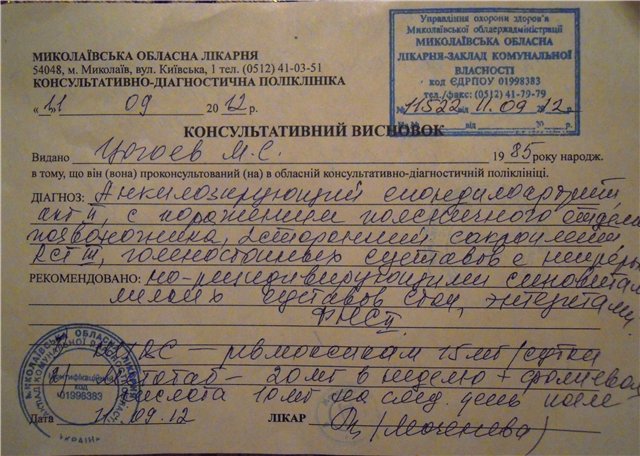 Управління охорони здоров'я
Миколаївської облдержадміністрації
МИКОЛАЇВСЬКА ОБЛАСНА
ЛІКАРНЯ-ЗАКЛАД КОМУНАЛЬНОЇ
ВЛАСНОСТІ
код ЄДРПОУ 01998383
тел./факс: (0512) 41-79-79
№ 11522 11.09 2012 р.
на № від р.
МИКОЛАЇВСЬКА ОБЛАСНА ЛІКАРНЯ
54048, м. Миколаїв, вул. Київська, 1 тел. (0512) 41-03-51
КОНСУЛЬТАТИВНО-ДІАГНОСТИЧНА ПОЛІКЛІНІКА
« 11 » 09 2012 р.
КОНСУЛЬТАТИВНИЙ ВИСНОВОК
Видано М.С. 1985 року народж.
в тому, що він (вона) проконсультований (на) в обласній консультативно-діагностичній поліклініці.
ДІАГНОЗ: Анкилозирующий спондилоартрит,
акт II с поражением поясничного отдела
позвоночника, 2сторонний сакроилеит
RСТ III, голеностопных суставов с непреры
РЕКОМЕНДОВАНО: но-рецидивирующими синовитами
мелких суставов стоп, энтезитами.
ФНС II
ревмоксикам 15 мг/сутки
20 мг в неделю + фолиевая
кислота 10 мг на след. день после
Дата 11.09.12 ЛІКАР
МИКОЛАЇВСЬКА ОБЛАСНА ЛІКАРНЯ
Ідентифікаційний
код
01998383
УКРАЇНА